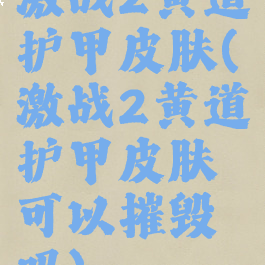 激战2黄道
护甲皮肤(
激战2黄道
护甲皮肤
可以摧毁
吧)